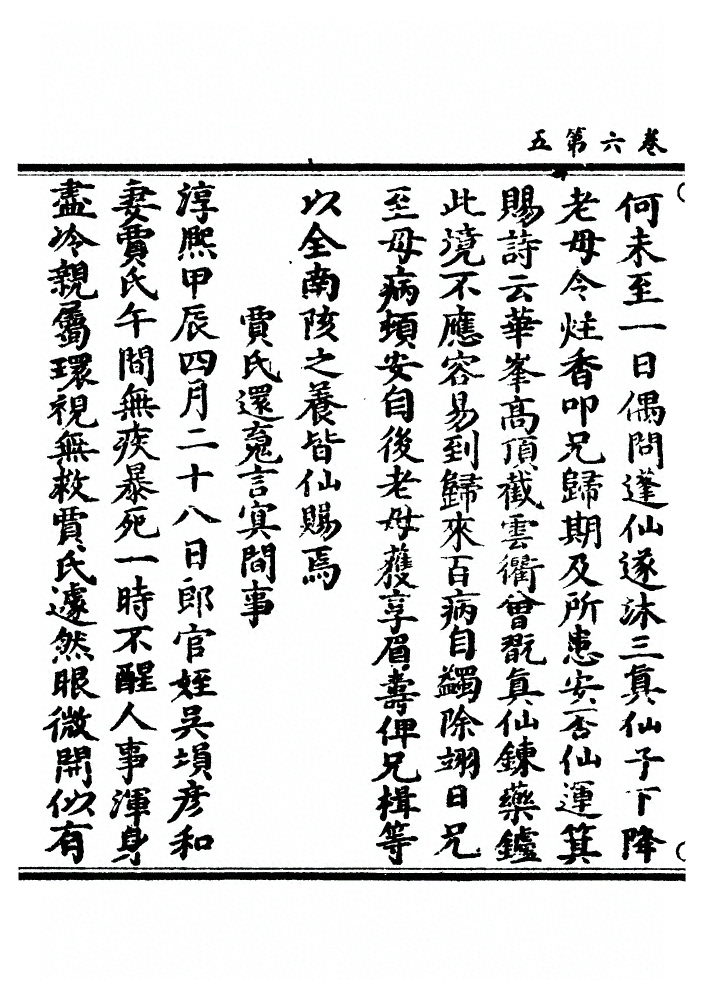 卷六第五
何未至一日偶問蓬仙遂沐三真仙子下降
老母令炷香叩兄歸期及所患安否仙運箕
賜詩云華峯高頂截雲衢曾翫真仙鍊藥鑪
此境不應容易到歸來百病自蠲除翊日兄
至母病頓安自後老母獲享眉壽俾兄楫等
以全南陔之養皆仙賜焉
賈氏還䰟言㝠間事
淳熙甲辰四月二十八日郎官姪吳塤彥和
妻賈氏午間無疾暴死一時不醒人事渾身
盡冷親屬環視無救賈氏遽然眼微開似有